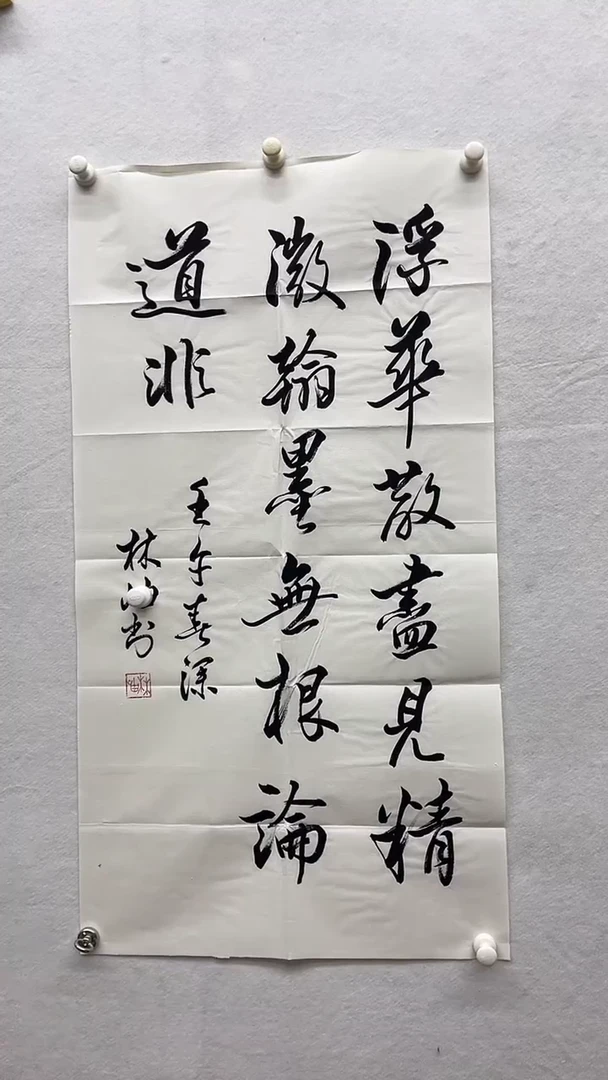 浮華散盡見精
微翰墨無根論
道非
壬午春深
林書